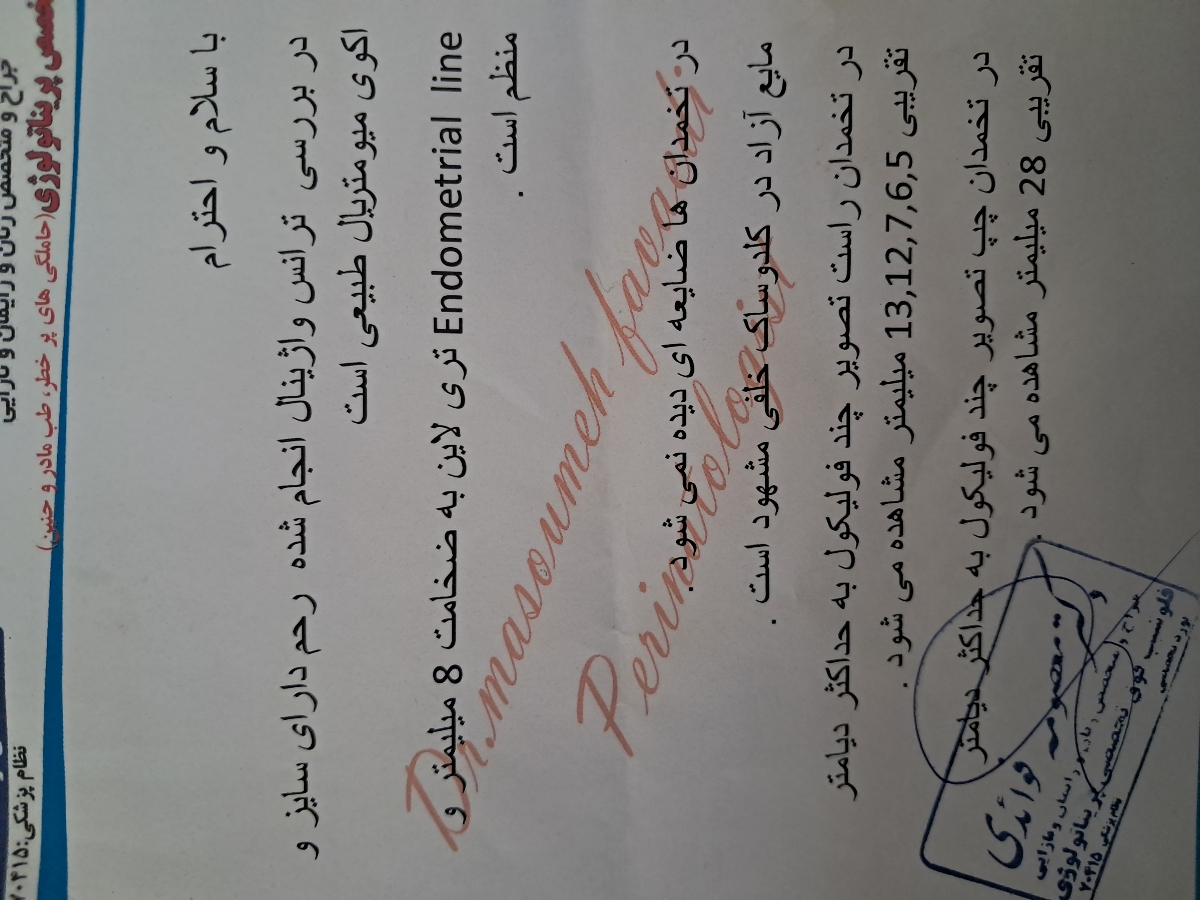 جراح و متخصص زنان و زایمان و نازایی
تخصص پریناتولوژی(حاملگی های پر خطر، طب مادر و جنین)
نظام پزشکی:۷۰۴۱۵
با سلام و احترام
در بررسی ترانس واژینال انجام شده رحم دارای سایز و
اکوی میومتریال طبیعی است
Endometrial line تری لاین به ضخامت 8 میلیمتر و
منظم است .
در تخمدان ها ضایعه ای دیده نمی شود.
مایع آزاد در کلدوساک خلفی مشهود است .
در تخمدان راست تصویر چند فولیکول به حداکثر دیامتر
تقریبی 13,12,7,6,5 میلیمتر مشاهده می شود .
در تخمدان چپ تصویر چند فولیکول به حداکثر دیامتر
تقریبی 28 میلیمتر مشاهده می شود .
Dr.masoumeh favaedi
Perinatologist
دکتر معصومه فوائدی
جراح و متخصص زنان و زایمان و نازایی
فلوشیپ فوق تخصصی پریناتولوژی
بورد تخصصی
نظام پزشکی ۷۰۴۱۵